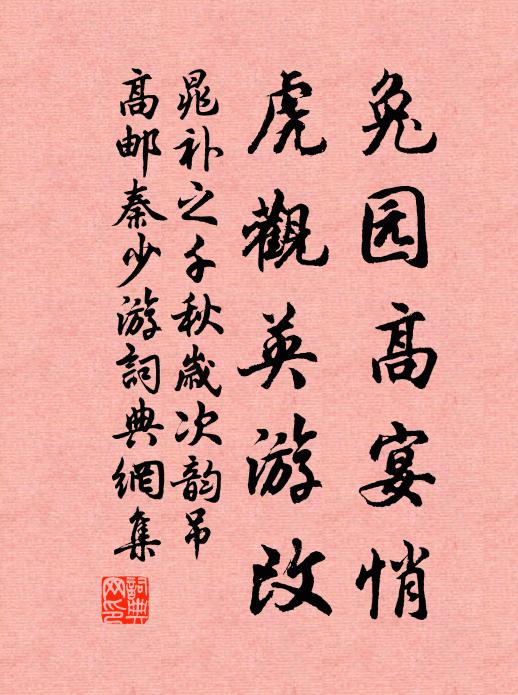 兔园高宴悄
虎觀英游改
晁补之千秋歲次韵吊
高邮秦少游詞典網集
詞典网印